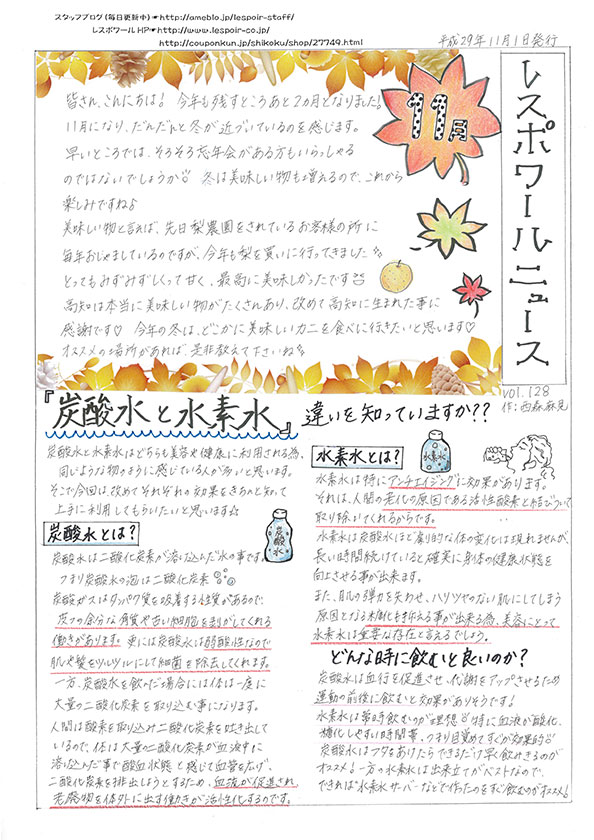 スタッフブログ(毎日更新中)☛http://ameblo.jp/lespoir-staff/
レスポワールHP☛http://www.lespoir-co.jp/
http://couponkun.jp/shikoku/shop/27749.html
平成29年11月1日発行
レスポワールニュース
vol.128
作:西森麻見
11月
皆さん、こんにちは! 今年も残すところあと2カ月となりました!
11月になり、だんだんと冬が近づいているのを感じます。
早いところでは、そろそろ忘年会がある方もいらっしゃる
のではないでしょうか 冬は美味しい物も増えるので、これから
楽しみですね♪
美味しい物と言えば、先日梨農園をされているお客様の所に
毎年おじゃましているのですが、今年も梨を買いに行ってきました
とってもみずみずしくって甘く、最高に美味しかったです
高知は本当に美味しい物がたくさんあり、改めて高知に生まれた事に
感謝です♡ 今年の冬は、どこかに美味しいカニを食べに行きたいと思います♡
オススメの場所があれば、是非教えて下さいね
『炭酸水と水素水』違いを知っていますか??
炭酸水と水素水はどちらも美容や健康に利用される為、
同じような物のように感じている人が多いと思います。
そこで今回は、改めてそれぞれの効果をきちんと知って
上手に利用してもらいたいと思います☆
炭酸水とは?
炭酸水
炭酸水は二酸化炭素が溶け込んだ水の事です。
つまり炭酸水の泡は二酸化炭素
炭酸ガスはタンパク質を吸着する性質があるので、
皮フの余分な角質や古い細胞を剥がしてくれる
働きがあります。更には炭酸水は弱酸性なので
肌や髪をツルツルにして細菌を除去してくれます。
一方、炭酸水を飲んだ場合には体は一度に
大量の二酸化炭素を取り込む事になります。
人間は酸素を取り込み二酸化炭素を吐き出して
いるので、体は大量の二酸化炭素が血液中に
溶け込んだ事で酸血状態と感じて血管を広げ、
二酸化炭素を排出しようとするため、血液が促進され、
老廃物を体外に出す働きが活性化するのです。
水素水とは?
水素水
水素水は特にアンチエイジングに効果があります。
それは、人間の老化の原因である活性酸素と結びついて
取り除いてくれるからです。
水素水は炭酸水ほど劇的な体の変化は現れませんが、
長い時間続けていると確実に身体の健康状態を
向上させる事が出来ます。
また、肌の弾力を失わせ、ハリツヤのない肌にしてしまう
原因となる糖化も抑える事が出来る為、美容にとって
水素水は重要な存在と言えるでしょう。
どんな時に飲むと良いのか?
炭酸水は血行を促進させ、代謝をアップさせるため
運動の前後に飲むと効果がありそうです!
水素水は常時飲むのが理想 特に血液が酸化、
糖化しやすい時間帯、つまり目覚めてすぐが効果的
炭酸水はフタをあけたらできるだけ早く飲みきるのが
オススメ!一方の水素水は出来立てがベストなので、
できれば水素水サーバーなどで作ったのをすぐ飲むのがオススメ!